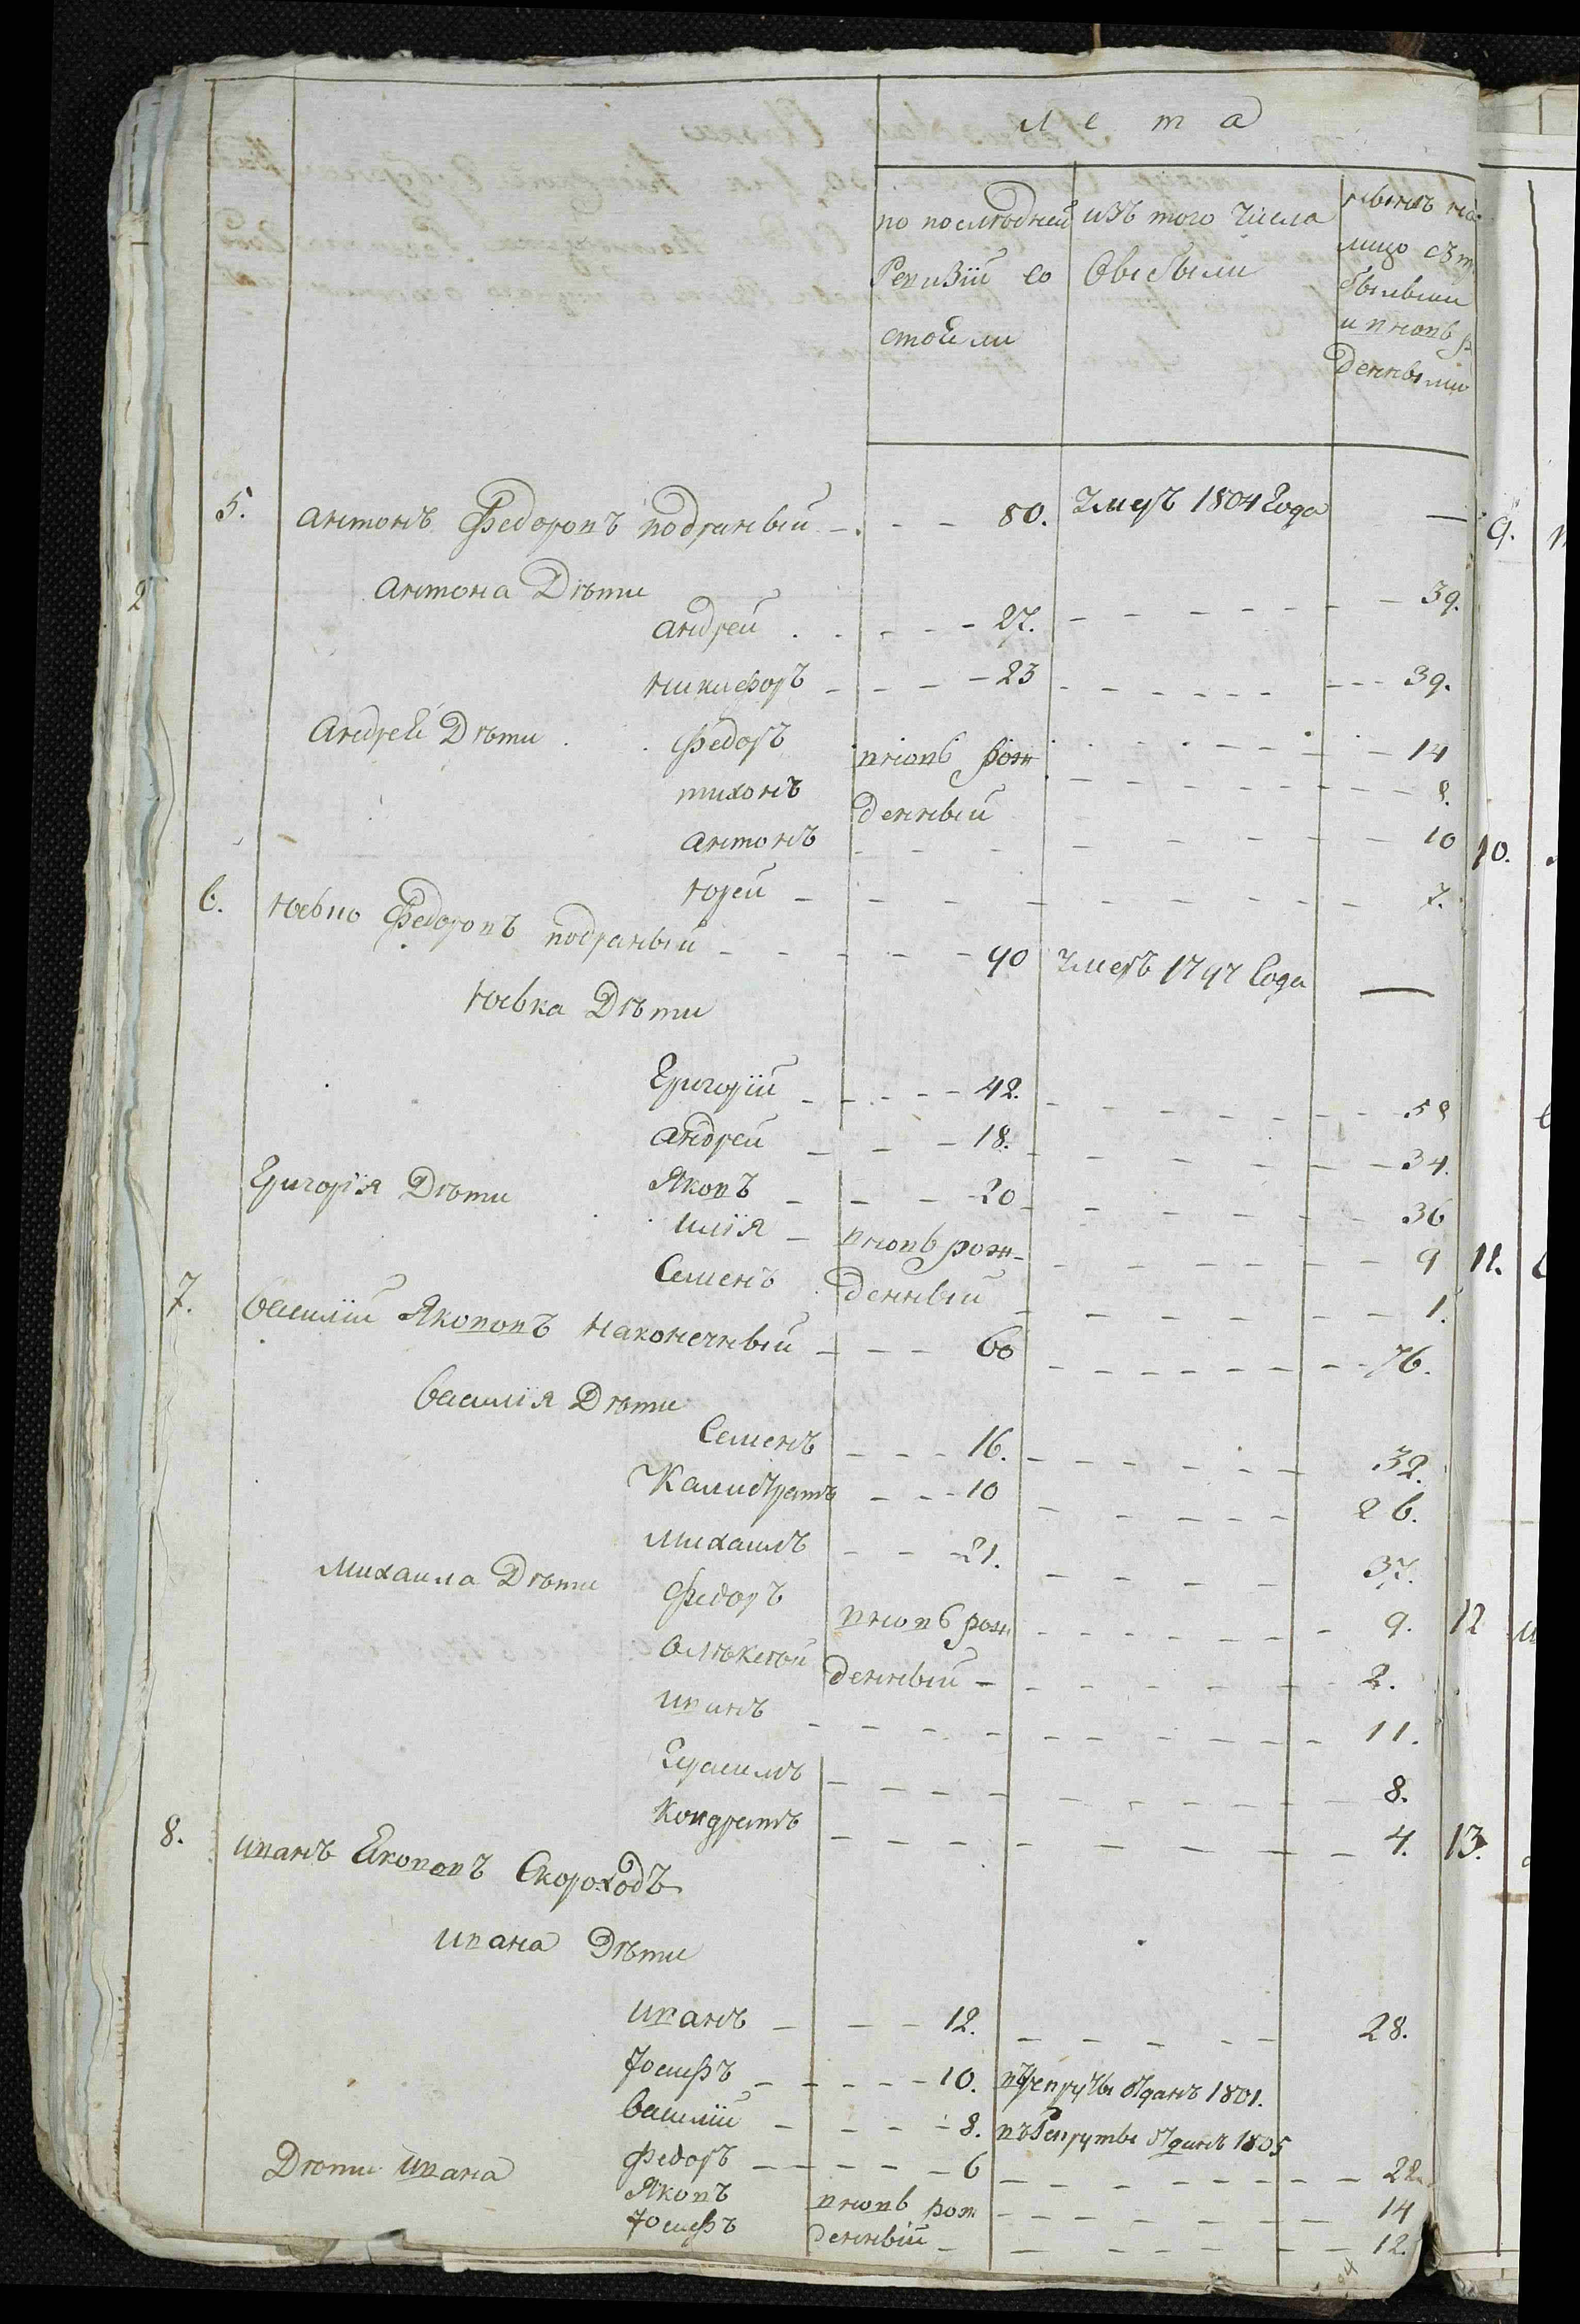 лета
по последней изъ того числа
Ревизiи со выбыли
стояли
ныне на
лицо съ
бывши
и вновь р
денными
5. Антонъ Федоровъ подраный - - - 80. умеръ 1804 года —
Антона Дѣти
Андрей - - - 27. - - - 39.
Никифоръ - - - 23 - - - 39.
Андрея Дѣти Федоръ вновь рож - - - 14
тихонъ денный - - - 8.
Антонъ - - - 10
Юрей - - - 7.
6. Федоровъ подраный - - - 90 умеръ 1797 года —
Дѣти
Григорiй - - - 42. - - - 58
Андрей - - - 18. - - - 34.
Григорiя Дѣти Яковъ - - - 20 - - - 36
Илiя - вновь рож - - - 9
Семенъ денный - - - 1.
7. Василiй Якововъ Наконечный - - - 60 - - - 76.
Василiя Дѣти
Семенъ - - - 16. - - - 32.
Калистратъ - - - 10 - - - 26.
Михаилъ - - - 21. - - - 37.
Михаила Дѣти Федоръ вновь рож - - - 9.
Олѣксѣй денный - - - 2.
Иванъ - - - 11.
Герасимъ - - - 8.
Кондратъ - - - 4.
8. Иванъ Якововъ Скороходъ
Ивана Дѣти
Иванъ - - - 12. - - - 28.
Иосифъ - - - 10. въ рекруты отданъ 1801.
Василiй - - - 8. въ рекруты отданъ 1805
Федоръ - - - 6 - - - 22
Дѣти Ивана Яковъ вновь рож - - - 14
Иосифъ денный - - - 12.
2
9.
10.
11.
12
13.